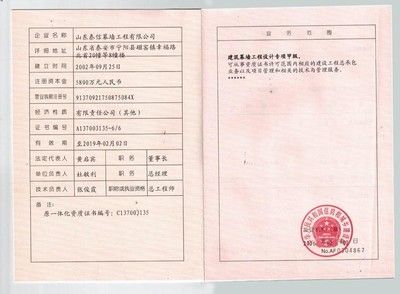 企业名称 山东泰信幕墙工程有限公司
详细地址 山东省泰安市宁阳县磁窑镇幸福路
北首20幢等8幢楼
建立时间 2002年09月25日
注册资本金 5890万元人民币
营业执照注册号 91370921750875084X
经济性质 有限责任公司(其他)
证书编号 A137003135-6/6
有效期 至2019年02月02日
法定代表人 黄启宾 职务 董事长
单位负责人 杜敏利 职务 总经理
技术负责人 张俊霞 职称或执业资格 总工程师
备注:
原一体化资质证书编号:C137003135
业务范围
建筑幕墙工程设计专项甲级。
可从事资质证书许可范围内相应的建设工程总承包
业务以及项目管理和相关的技术与管理服务。
No.AF